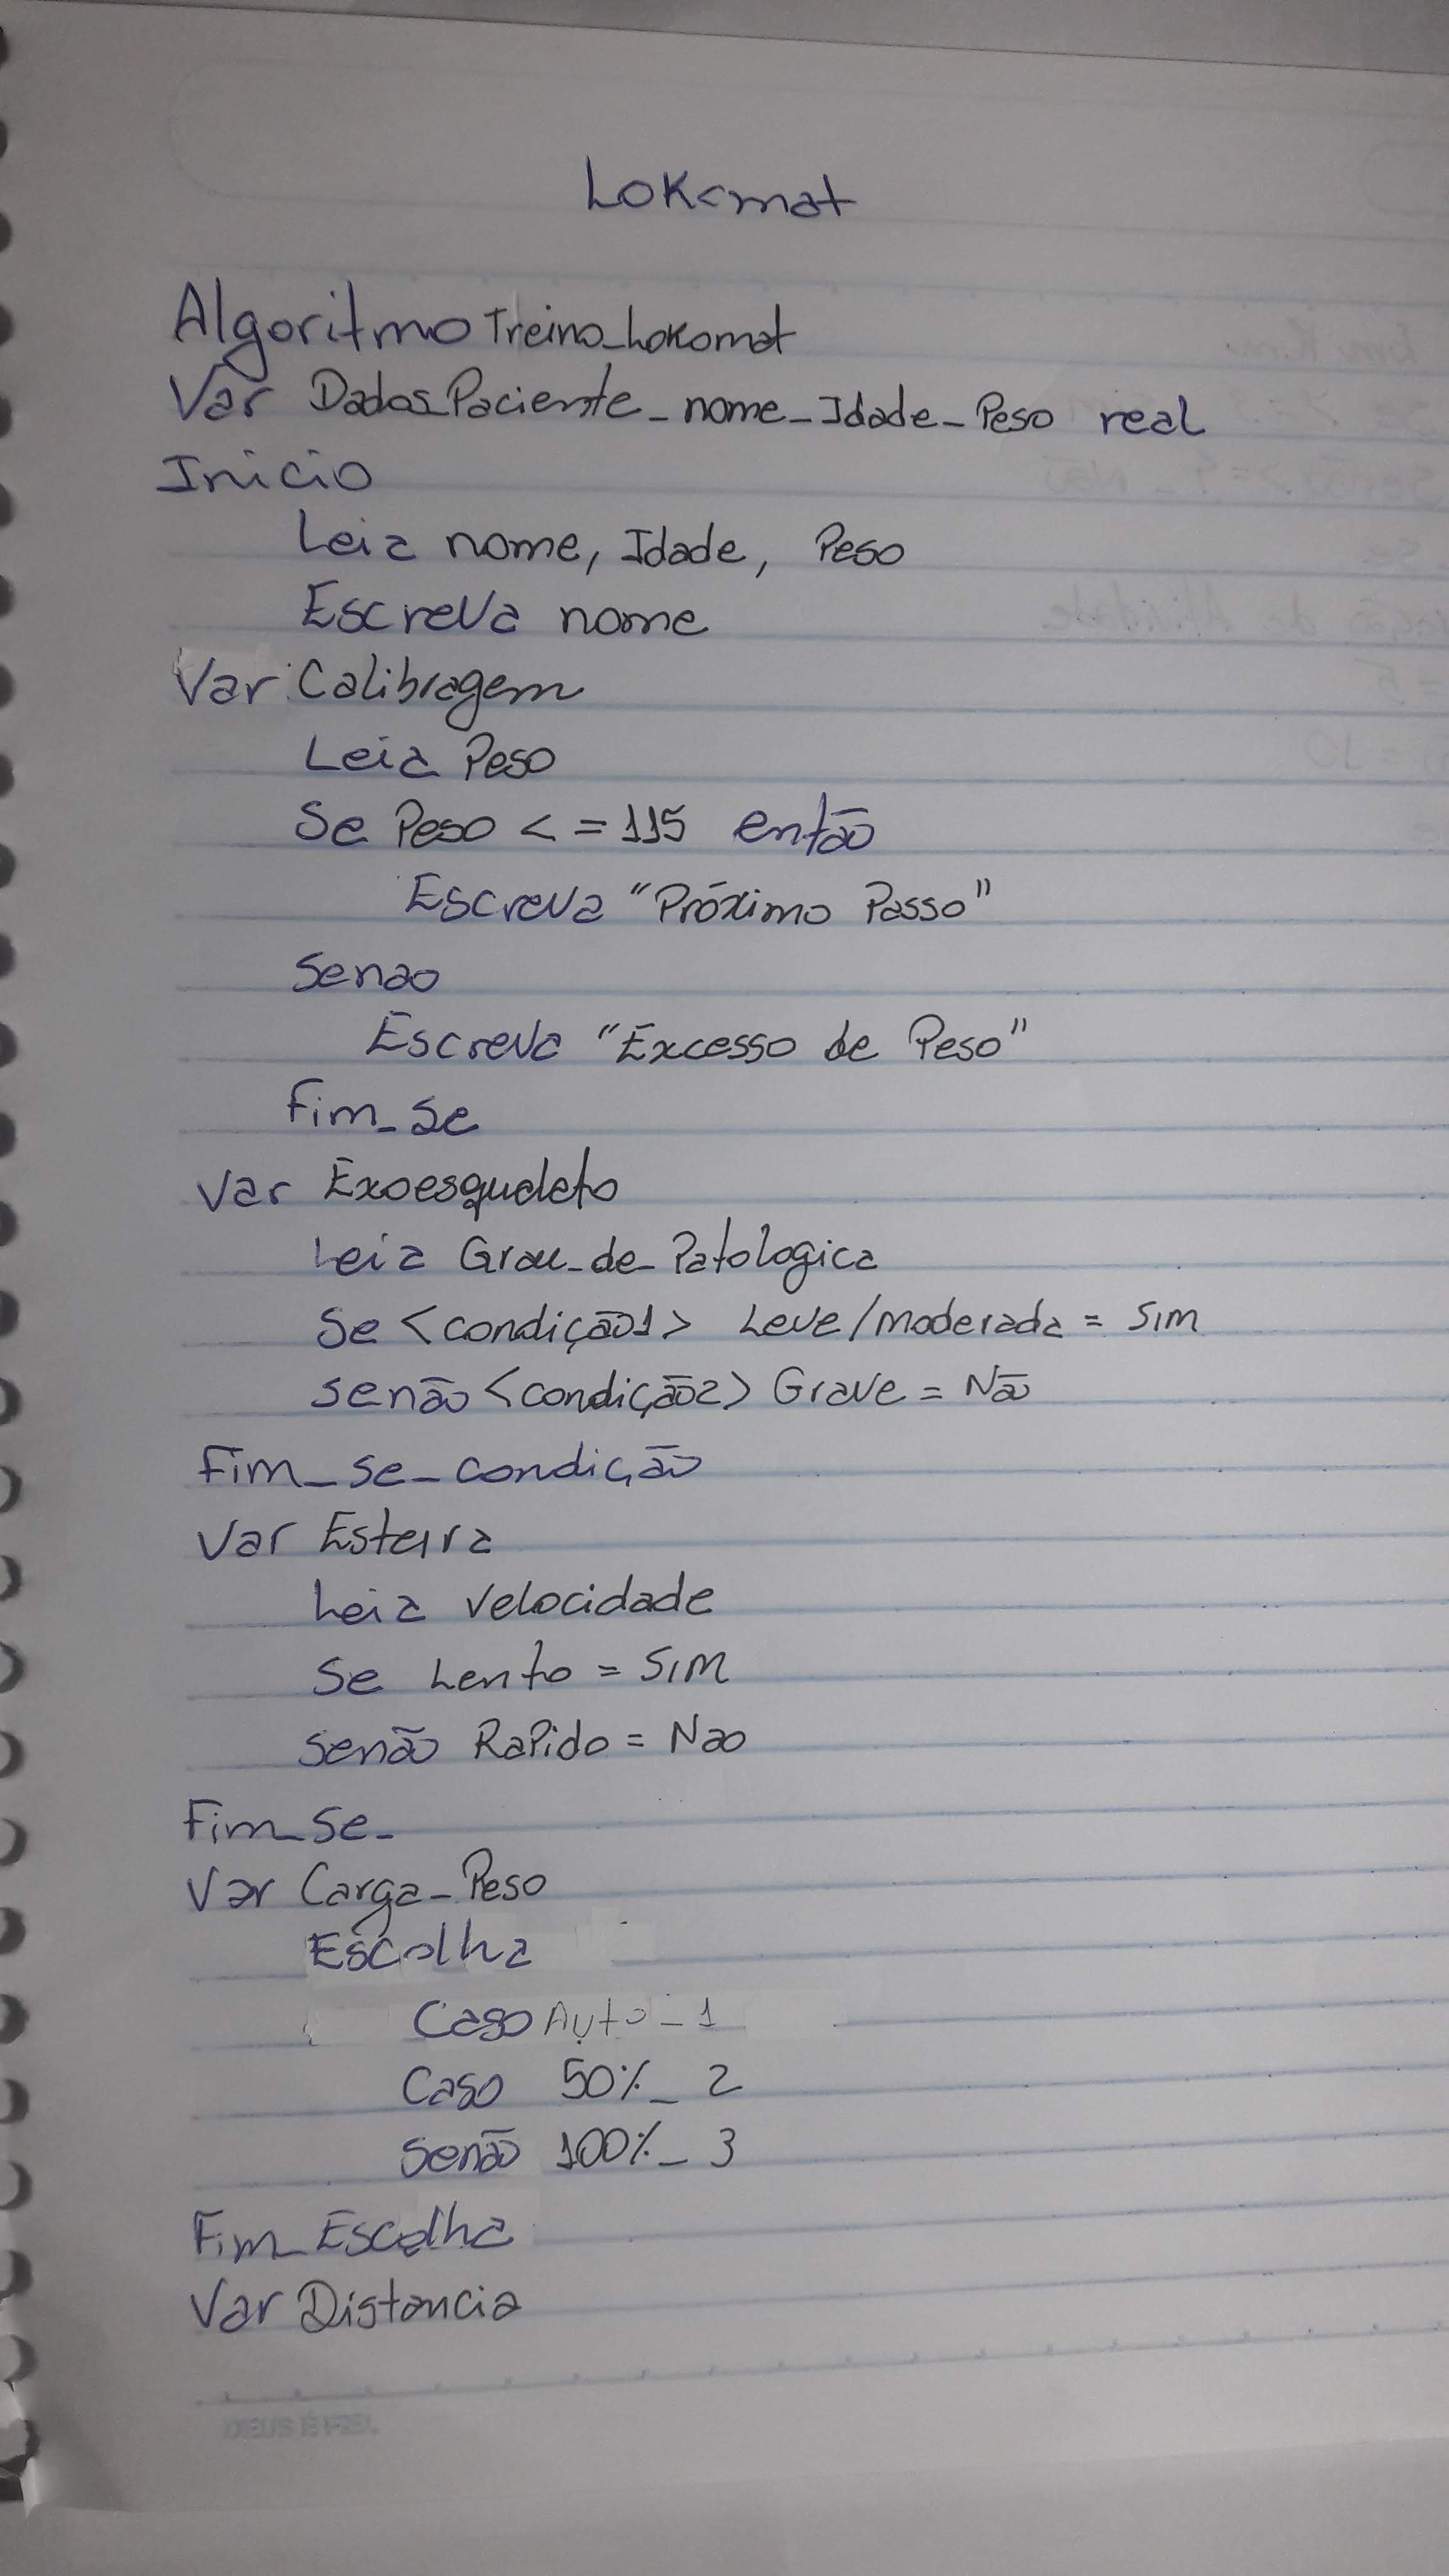 Lokomat
Algoritmo Treino_Lokomat
Var Dados_Paciente_nome_Idade_Peso real
Inicio
Leia nome, Idade, Peso
Escreva nome
Var Calibragem
Leia Peso
Se Peso <=115 então
Escreva "Próximo Passo"
Senao
Escreva "Excesso de Peso"
Fim_Se
Var Exoesqueleto
Leia Grau_de_Patologica
Se <condição1> Leve/moderada = SIM
senão <condição2> Grave = Não
Fim_se_condição
Var Esteira
Leia velocidade
Se Lento = SIM
senão Rapido = Nao
Fim_se_
Var Carga_Peso
Escolha
Caso Auto_1
Caso 50%_2
Senão 100%_3
Fim_Escolha
Var Distancia
DEUS É FIEL